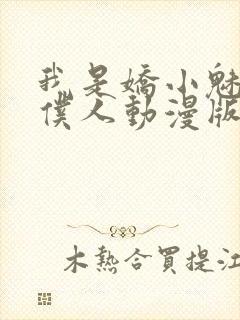 我是嬌小魅
僕人動漫版
木熱合買提江